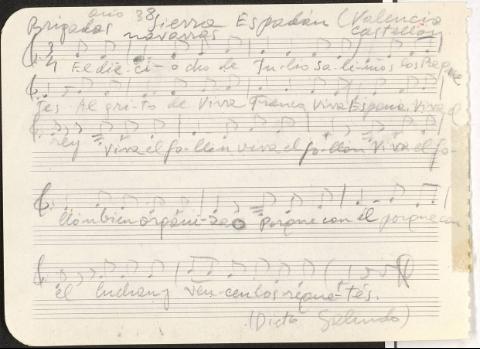 año 38
Brigadas Sierra Espadán (Valencia
navarras Castellón
El die-ci-o cho de Julio sa-li-mos los Reque
tés. Al gri-to de Viva Franco, Viva España, Viva el
rey Viva el fa-llón viva el fa-llón Viva el fa-
llón bien organi-zao Porque con él porque con
él luchan y ven-cen los reque-tés.
(Dictó Galindo)